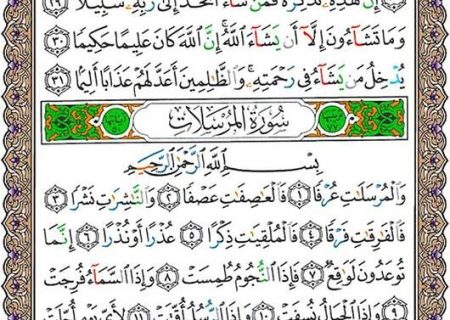 إِنَّ هَٰذِهِۦ تَذْكِرَةٌ ۖ فَمَن شَآءَ ٱتَّخَذَ إِلَىٰ رَبِّهِۦ سَبِيلًا ٢٩
وَمَا تَشَآءُونَ إِلَّآ أَن يَشَآءَ ٱللَّهُ ۚ إِنَّ ٱللَّهَ كَانَ عَلِيمًا حَكِيمًا ٣٠
يُدْخِلُ مَن يَشَآءُ فِى رَحْمَتِهِۦ ۚ وَٱلظَّٰلِمِينَ أَعَدَّ لَهُمْ عَذَابًا أَلِيمًۢا ٣١
سُورَةُ الْمُرْسَلَاتِ
بِسْمِ ٱللَّهِ ٱلرَّحْمَٰنِ ٱلرَّحِيمِ
وَٱلْمُرْسَلَٰتِ عُرْفًا ١ فَٱلْعَٰصِفَٰتِ عَصْفًا ٢ وَٱلنَّٰشِرَٰتِ نَشْرًا ٣
فَٱلْفَٰرِقَٰتِ فَرْقًا ٤ فَٱلْمُلْقِيَٰتِ ذِكْرًا ٥ عُذْرًا أَوْ نُذْرًا ٦ إِنَّمَا
تُوعَدُونَ لَوَٰقِعٌ ٧ فَإِذَا ٱلنُّجُومُ طُمِسَتْ ٨ وَإِذَا ٱلسَّمَآءُ فُرِجَتْ
٩ وَإِذَا ٱلْجِبَالُ نُسِفَتْ ١٠ وَإِذَا ٱلرُّسُلُ أُقِّتَتْ ١١ لِأَىِّ يَوْمٍ أُجِّلَتْ